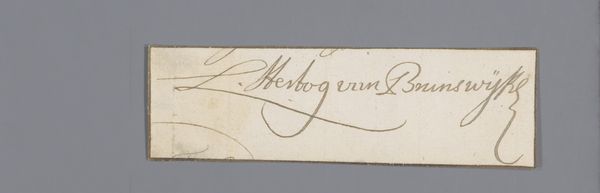 L. Hertog van Brunswijk